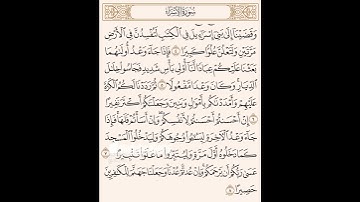 سُورَةُ الإِسْرَاءِ
وَقَضَيْنَآ إِلَىٰ بَنِىٓ إِسْرَٰٓءِيلَ فِى ٱلْكِتَٰبِ لَتُفْسِدُنَّ فِى ٱلْأَرْضِ
مَرَّتَيْنِ وَلَتَعْلُنَّ عُلُوًّا كَبِيرًا ٤ فَإِذَا جَآءَ وَعْدُ أُولَىٰهُمَا
بَعَثْنَا عَلَيْكُمْ عِبَادًا لَّنَآ أُو۟لِى بَأْسٍ شَدِيدٍ فَجَاسُوا۟ خِلَٰلَ
ٱلدِّيَارِ وَكَانَ وَعْدًا مَّفْعُولًا ٥ ثُمَّ رَدَدْنَا لَكُمُ ٱلْكَرَّةَ
عَلَيْهِمْ وَأَمْدَدْنَٰكُم بِأَمْوَٰلٍ وَبَنِينَ وَجَعَلْنَٰكُمْ أَكْثَرَ نَفِيرًا
٦ إِنْ أَحْسَنتُمْ أَحْسَنتُمْ لِأَنفُسِكُمْ وَإِنْ أَسَأْتُمْ فَلَهَا فَإِذَا
جَآءَ وَعْدُ ٱلْءَاخِرَةِ لِيَسُۥٓـُٔوا۟ وُجُوهَكُمْ وَلِيَدْخُلُوا۟ ٱلْمَسْجِدَ
كَمَا دَخَلُوهُ أَوَّلَ مَرَّةٍ وَلِيُتَبِّرُوا۟ مَا عَلَوْا۟ تَتْبِيرًا ٧
عَسَىٰ رَبُّكُمْ أَن يَرْحَمَكُمْ وَإِنْ عُدتُّمْ عُدْنَا وَجَعَلْنَا جَهَنَّمَ لِلْكَٰفِرِينَ
حَصِيرًا ٨